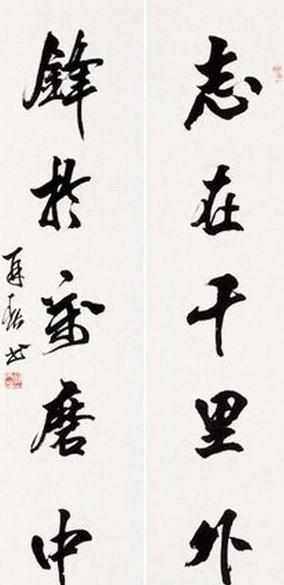 志在千里外
鋒於萬磨中